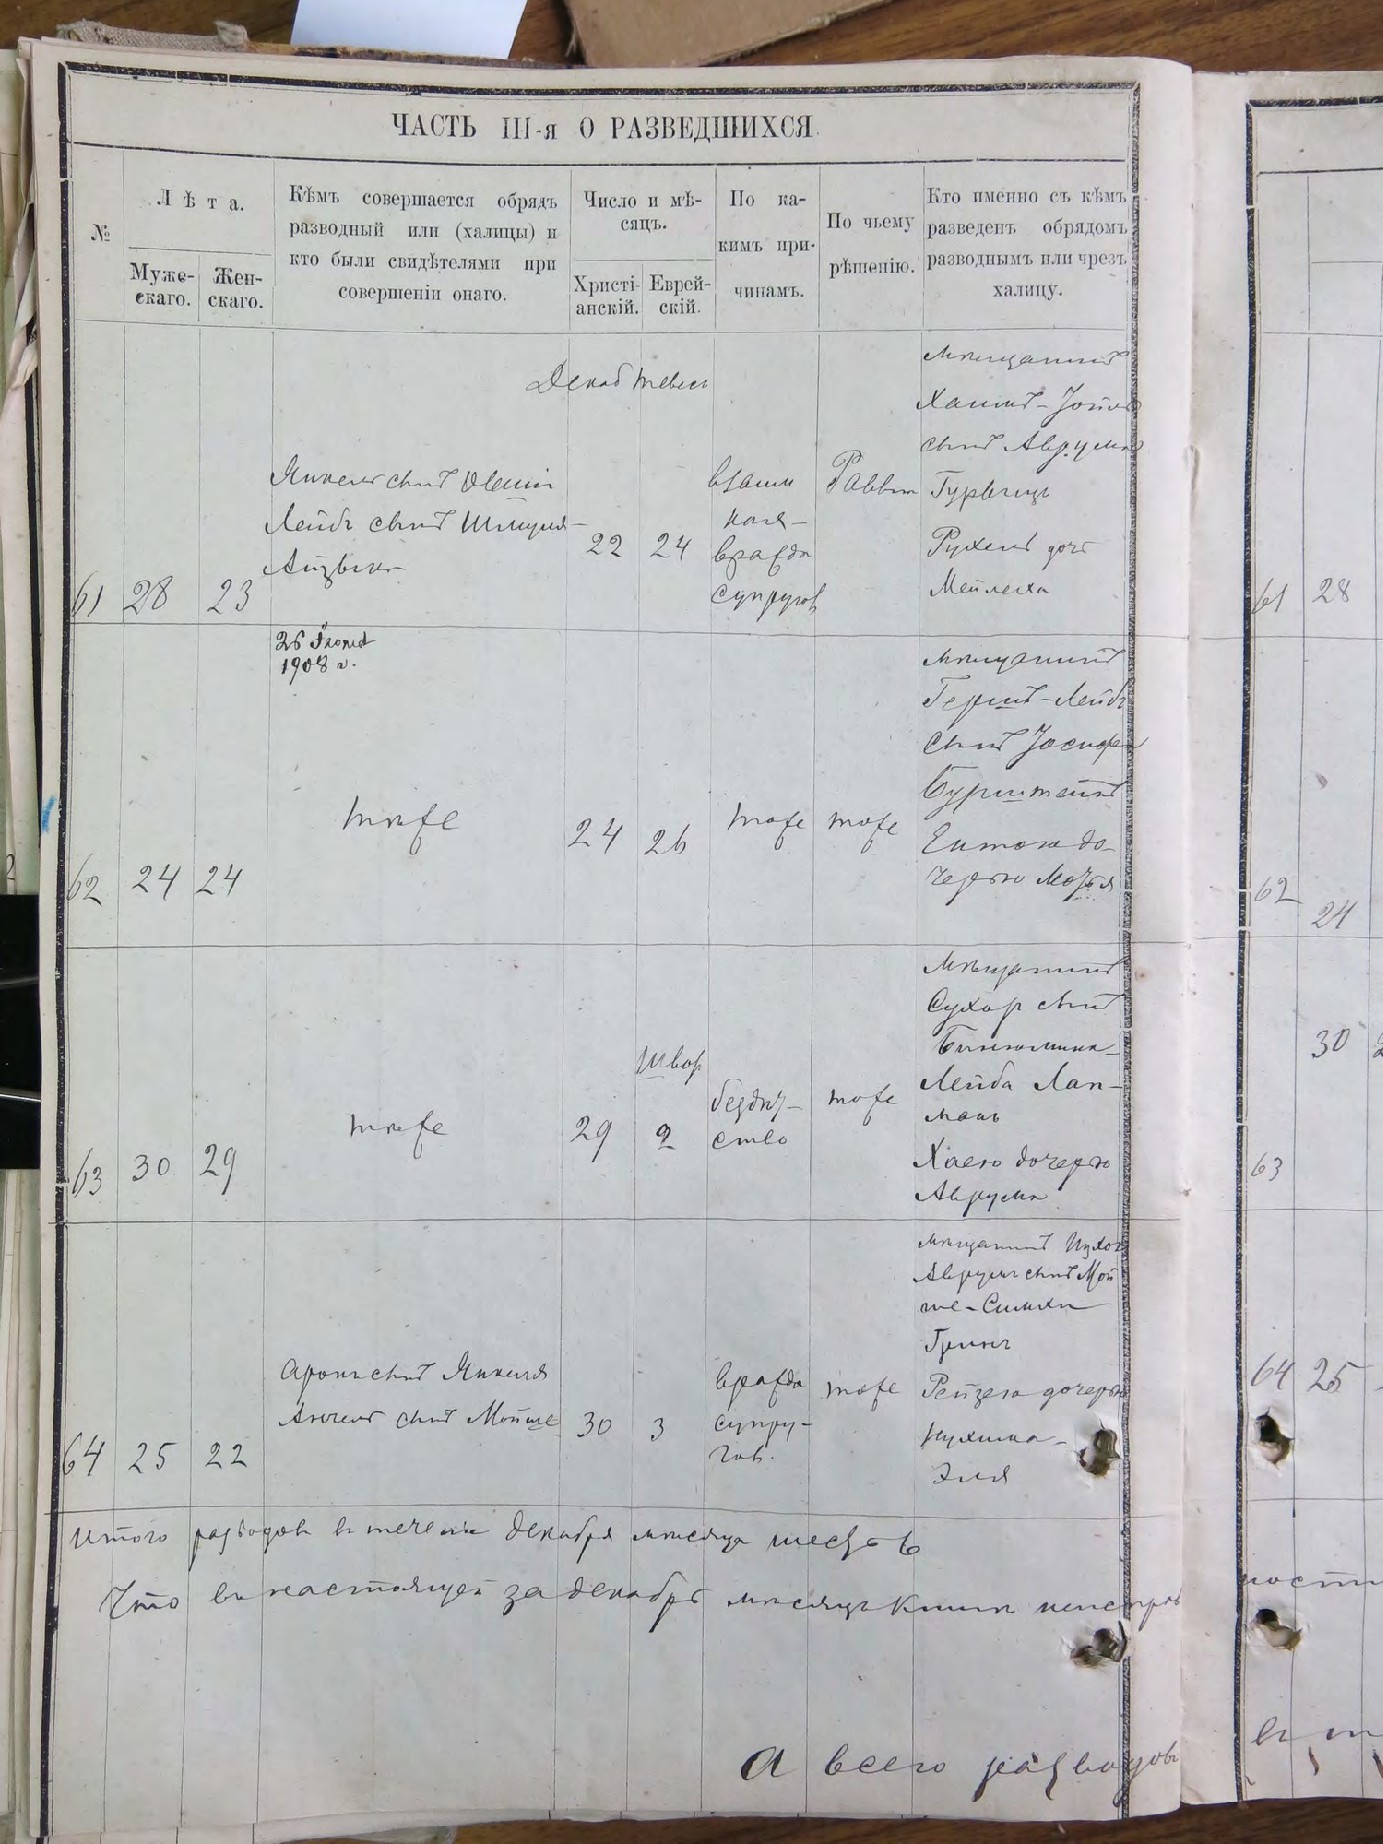 ЧАСТЬ III-я О РАЗВЕДШИХСЯ.
№
Лѣта.
Муже-
скаго.
Жен-
скаго.
Кѣмъ совершается обрядъ
разводный или (халицы) и
кто были свидѣтелями при
совершеніи онаго.
Число и мѣ-
сяцъ.
Христі-
анскій.
Еврей-
скій.
По ка-
кимъ при-
чинамъ.
По чьему
рѣшенію.
Кто именно съ кѣмъ
разведенъ обрядомъ
разводнымъ или чрезъ
халицу.
Декаб тевес
61
28
23
Янкель сынъ Овшія
Лейбъ сынъ Шмуля-
Айзика
22
24
взаим
ная
вражда
супруговъ
Раввин
мѣщанинъ
Хаимъ-Іойна
сынъ Аврума
Гурвицъ
Рухель доч
Мейлеха
62
24
24
1908 г.
тоже
24
26
тоже
тоже
мѣщанинъ
Гершъ-Лейбъ
сынъ Іосифа
Бурштейнъ
Ентою до-
черью
63
30
29
тоже
29
Швог
2
бездѣт-
ство
тоже
мѣщанинъ
Сухор сынъ
Биньомина-
Лейба Лап-
манъ
Хаею дочерью
Аврума
64
25
22
Аронъ сынъ Янкеля
Анчель сынъ Мойше
30
3
вражда
супру-
говъ.
тоже
мѣщанинъ
Аврумъ сынъ Мой
ше-Симхи
Гринъ
Рейзею дочерью
Нухима-
Эля
Итого разводовъ въ теченіи декабря мѣсяца шесть
Что въ настоящей за декабрь мѣсяцъ книгѣ неисправ
А всего разводовъ
61
28
62
24
30
63
64
25
ности
въ